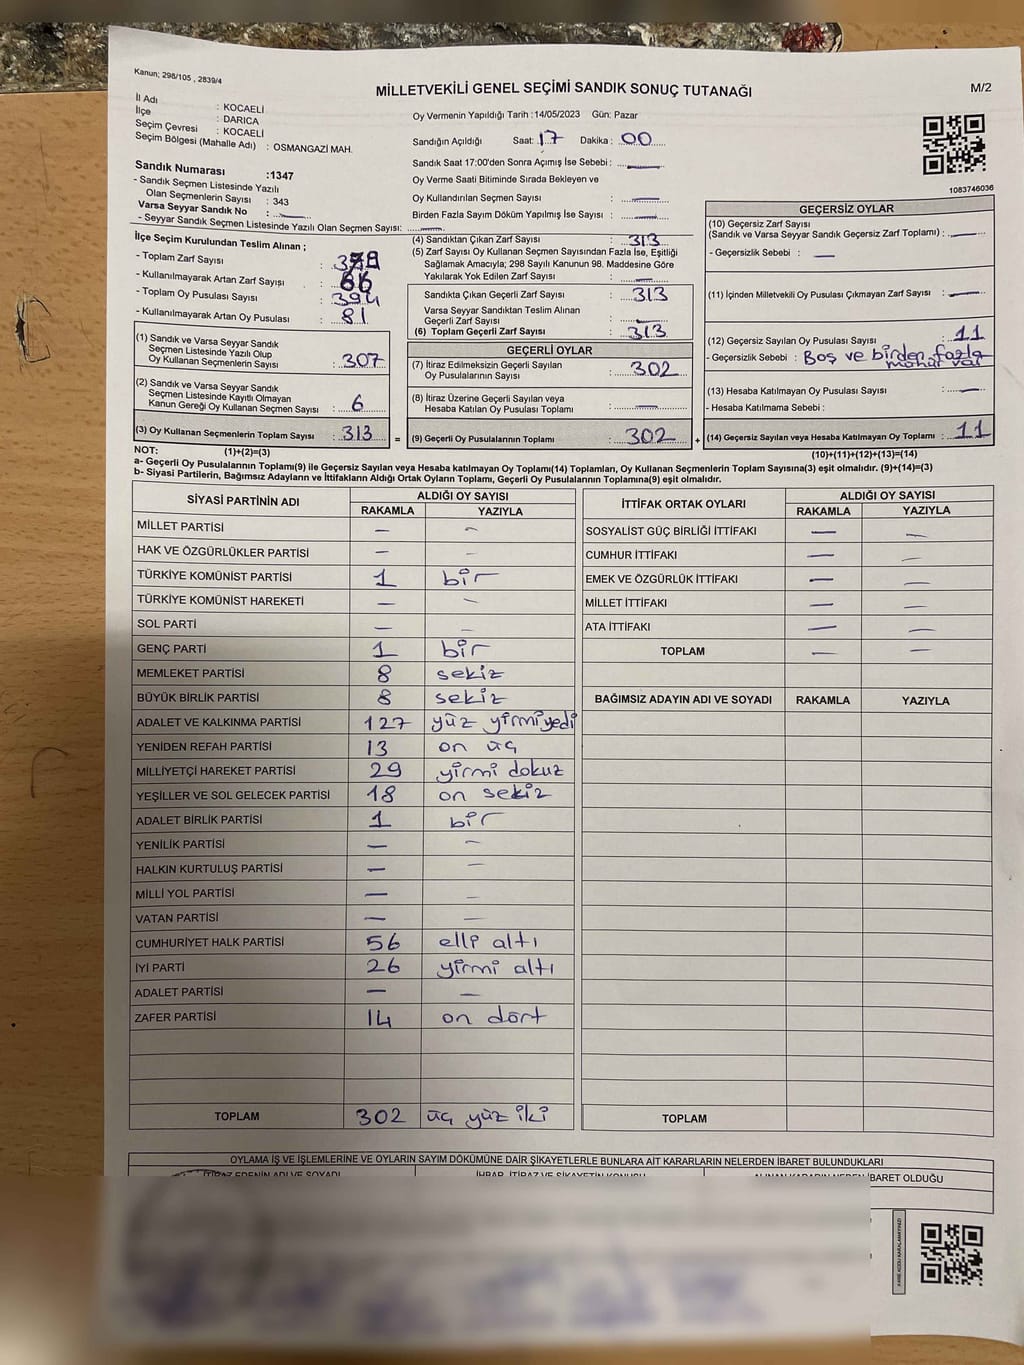 Kanun; 298/105 , 2839/4
MİLLETVEKİLİ GENEL SEÇİMİ SANDIK SONUÇ TUTANAĞI
M/2
İl Adı : KOCAELİ
İlçe : DARICA
Seçim Çevresi : KOCAELİ
Seçim Bölgesi (Mahalle Adı) : OSMANGAZİ MAH.
Oy Vermenin Yapıldığı Tarih :14/05/2023 Gün: Pazar
Sandığın Açıldığı Saat: 17 Dakika: 00
Sandık Saat 17:00'den Sonra Açımış İse Sebebi :
Oy Verme Saati Bitiminde Sırada Bekleyen ve
Oy Kullandırılan Seçmen Sayısı :
Birden Fazla Sayım Döküm Yapılmış İse Sayısı :
1083746036
Sandık Numarası :1347
- Sandık Seçmen Listesinde Yazılı
Olan Seçmenlerin Sayısı : 343
Varsa Seyyar Sandık No :
- Seyyar Sandık Seçmen Listesinde Yazılı Olan Seçmen Sayısı:
İlçe Seçim Kurulundan Teslim Alınan ;
- Toplam Zarf Sayısı :
- Kullanılmayarak Artan Zarf Sayısı : 66
- Toplam Oy Pusulası Sayısı : 394
- Kullanılmayarak Artan Oy Pusulası : 81
(1) Sandık ve Varsa Seyyar Sandık
Seçmen Listesinde Yazılı Olup
Oy Kullanan Seçmenlerin Sayısı : 307
(2) Sandık ve Varsa Seyyar Sandık
Seçmen Listesinde Kayıtlı Olmayan
Kanun Gereği Oy Kullanan Seçmen Sayısı : 6
(3) Oy Kullanan Seçmenlerin Toplam Sayısı : 313 =
(4) Sandıktan Çıkan Zarf Sayısı : 313
(5) Zarf Sayısı Oy Kullanan Seçmen Sayısından Fazla İse, Eşitliği
Sağlamak Amacıyla; 298 Sayılı Kanunun 98. Maddesine Göre
Yakılarak Yok Edilen Zarf Sayısı :
Sandıkta Çıkan Geçerli Zarf Sayısı : 313
Varsa Seyyar Sandıktan Teslim Alınan
Geçerli Zarf Sayısı :
(6) Toplam Geçerli Zarf Sayısı : 313
GEÇERLİ OYLAR
(7) İtiraz Edilmeksizin Geçerli Sayılan
Oy Pusulalarının Sayısı : 302
(8) İtiraz Üzerine Geçerli Sayılan veya
Hesaba Katılan Oy Pusulası Toplamı :
(9) Geçerli Oy Pusulalarının Toplamı : 302 +
GEÇERSİZ OYLAR
(10) Geçersiz Zarf Sayısı
(Sandık ve Varsa Seyyar Sandık Geçersiz Zarf Toplamı) :
- Geçersizlik Sebebi :
(11) İçinden Milletvekili Oy Pusulası Çıkmayan Zarf Sayısı :
(12) Geçersiz Sayılan Oy Pusulası Sayısı : 11
- Geçersizlik Sebebi : Boş ve birden fazla
mühür var
(13) Hesaba Katılmayan Oy Pusulası Sayısı :
- Hesaba Katılmama Sebebi :
(14) Geçersiz Sayılan veya Hesaba Katılmayan Oy Toplamı : 11
NOT: (1)+(2)=(3) (10)+(11)+(12)+(13)=(14)
a- Geçerli Oy Pusulalarının Toplamı(9) ile Geçersiz Sayılan veya Hesaba katılmayan Oy Toplamı(14) Toplamları, Oy Kullanan Seçmenlerin Toplam Sayısına(3) eşit olmalıdır. (9)+(14)=(3)
b- Siyasi Partilerin, Bağımsız Adayların ve İttifakların Aldığı Ortak Oyların Toplamı, Geçerli Oy Pusulalarının Toplamına(9) eşit olmalıdır.
SİYASİ PARTİNİN ADI ALDIĞI OY SAYISI
RAKAMLA YAZIYLA
MİLLET PARTİSİ — —
HAK VE ÖZGÜRLÜKLER PARTİSİ — —
TÜRKİYE KOMÜNİST PARTİSİ 1 bir
TÜRKİYE KOMÜNİST HAREKETİ — —
SOL PARTİ — —
GENÇ PARTİ 1 bir
MEMLEKET PARTİSİ 8 sekiz
BÜYÜK BİRLİK PARTİSİ 8 sekiz
ADALET VE KALKINMA PARTİSİ 127 yüz yirmi yedi
YENİDEN REFAH PARTİSİ 13 on üç
MİLLİYETÇİ HAREKET PARTİSİ 29 yirmi dokuz
YEŞİLLER VE SOL GELECEK PARTİSİ 18 on sekiz
ADALET BİRLİK PARTİSİ 1 bir
YENİLİK PARTİSİ — —
HALKIN KURTULUŞ PARTİSİ — —
MİLLİ YOL PARTİSİ — —
VATAN PARTİSİ — —
CUMHURİYET HALK PARTİSİ 56 elli altı
İYİ PARTİ 26 yirmi altı
ADALET PARTİSİ — —
ZAFER PARTİSİ 14 on dört
TOPLAM 302 üç yüz iki
İTTİFAK ORTAK OYLARI ALDIĞI OY SAYISI
RAKAMLA YAZIYLA
SOSYALİST GÜÇ BİRLİĞİ İTTİFAKI — —
CUMHUR İTTİFAKI — —
EMEK VE ÖZGÜRLÜK İTTİFAKI — —
MİLLET İTTİFAKI — —
ATA İTTİFAKI — —
TOPLAM — —
BAĞIMSIZ ADAYIN ADI VE SOYADI RAKAMLA YAZIYLA
TOPLAM
OYLAMA İŞ VE İŞLEMLERİNE VE OYLARIN SAYIM DÖKÜMÜNE DAİR ŞİKAYETLERLE BUNLARA AİT KARARLARIN NELERDEN İBARET BULUNDUKLARI
İTİRAZ EDENİN ADI VE SOYADI İHBAR, İTİRAZ VE ŞİKAYETİN KONUSU ALINAN KARARIN NEDEN İBARET OLDUĞU